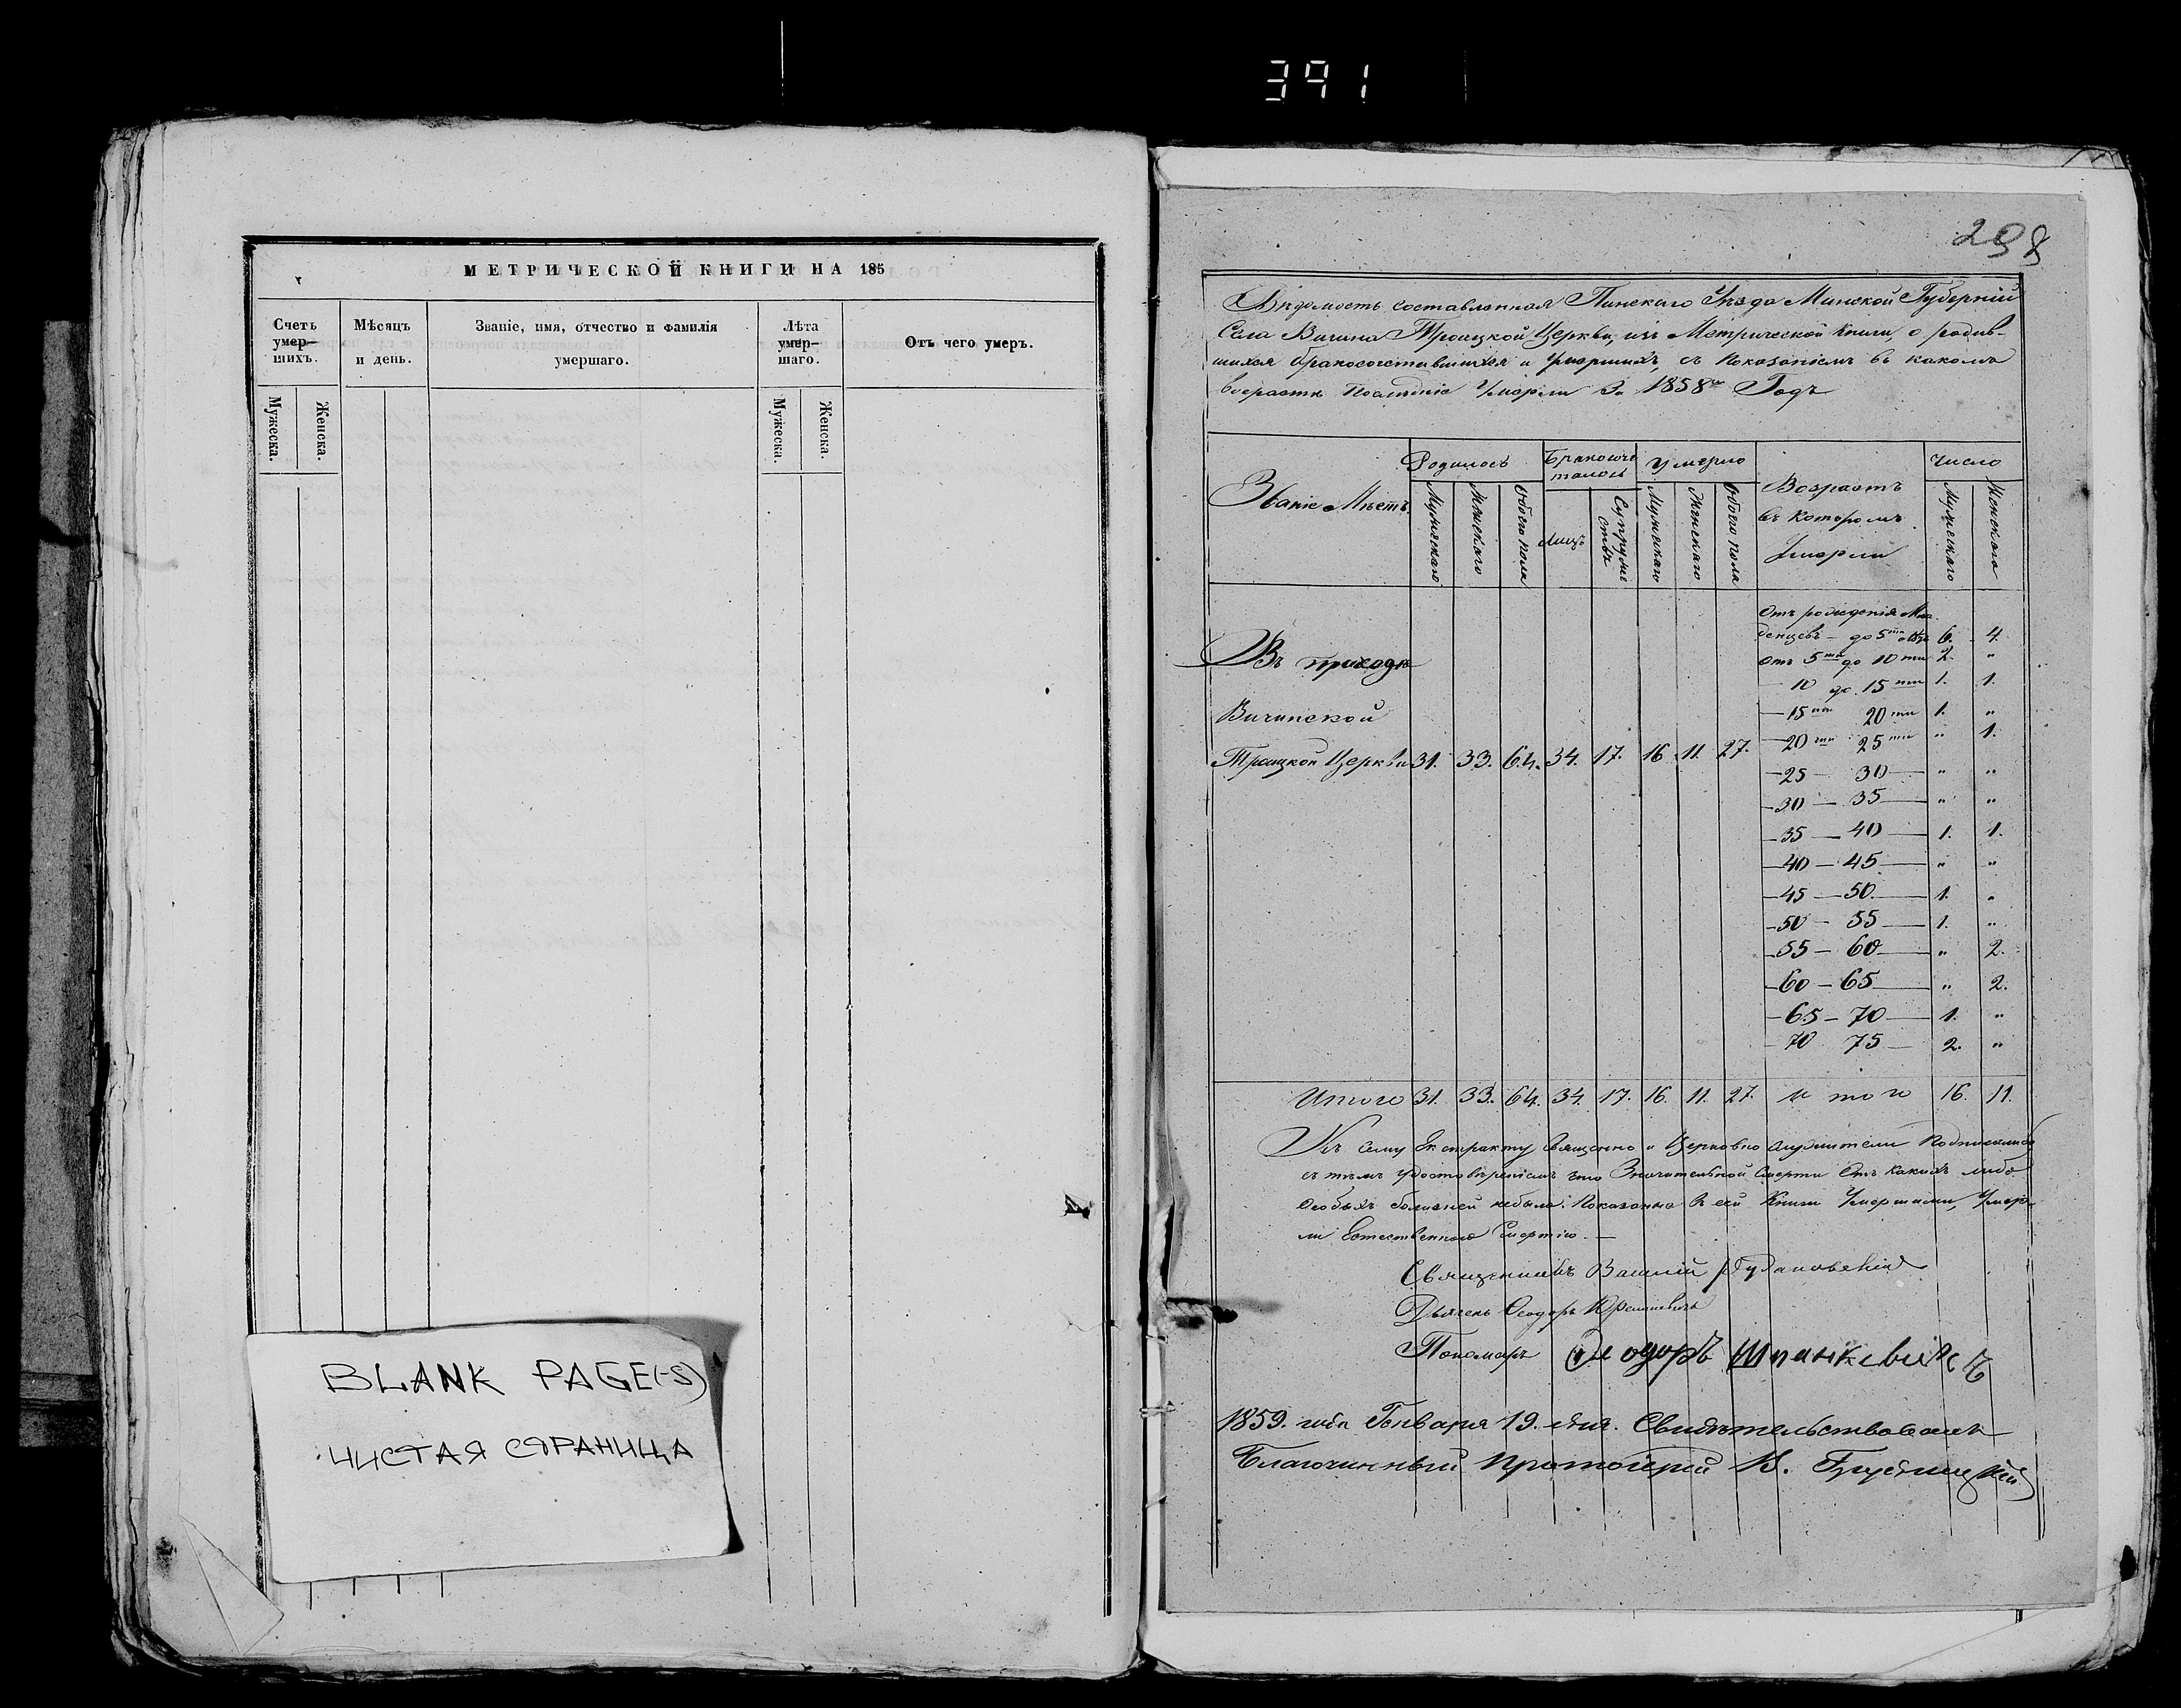 391
МЕТРИЧЕСКОЙ КНИГИ НА 185
Счетъ умер- шихъ.
Мѣсяцъ и день.
Званіе, имя, отчество и фамилія умершаго.
Лѣта умер- шаго.
Отъ чего умеръ.
Мужеска.
Женска.
Мужеска.
Женска.
BLANK PAGE(-S)
ЧИСТАЯ СТРАНИЦА
298
Вѣдомость составленная Пинскаго Уѣзда Минской Губерніи
Села Вичина Троицкой Церкви, изъ Метрической Книги, о родив-
шихся бракосочетавшихся и Умершихъ, съ показаніемъ въ какомъ
возрастѣ последніе Умерли За 1858й Годъ
Званіе Мѣстъ.
Родилось
Бракосоче талось
Умерло
Возрастъ
въ которомъ
Умерли
Число
Мужескаго
Женскаго
Обоего пола
Лицъ
Супруже ствъ
Мужескаго
Женскаго
Обоего пола
Мужескаго
Женскаго
Отъ рожденія Мла
денцевъ – до 5ти лѣтъ 6. 4.
Въ приходѣ
отъ 5ти до 10ти 2. "
— 10 до 15ти 1. 1.
Вичинской
— 15ти 20ти 1. "
— 20ти 25ти " 1.
Троицкой Церкви 31. 33. 64. 34. 17. 16 11. 27.
— 25 — 30 — " "
— 30 — 35 — " "
— 35 — 40 — 1. 1.
— 40 — 45 — " "
— 45 — 50 — 1. "
— 50 — 55 — 1. "
— 55 — 60 — " 2.
— 60 — 65 — " 2.
— 65 — 70 — 1. "
— 70 75 — 2. "
Итого 31. 33. 64. 34. 17. 16. 11. 27. итого 16. 11.
Къ сему Екстракту Священно и Церковно служители Подписались
съ тѣмъ удостовѣреніемъ что Значительной Смерти Отъ какихъ либо
Особыхъ болезней небыло. Показанные в сей Книги Умершими, Умер-
ли Естественною Смертію. —
Священникъ Василій
Дьячекъ Феодоръ
Пономарь Феодоръ Шпанкевичъ
1859. года Генваря 19. дня. Свидѣтельствовалъ
Благочинный Протоіерей В.